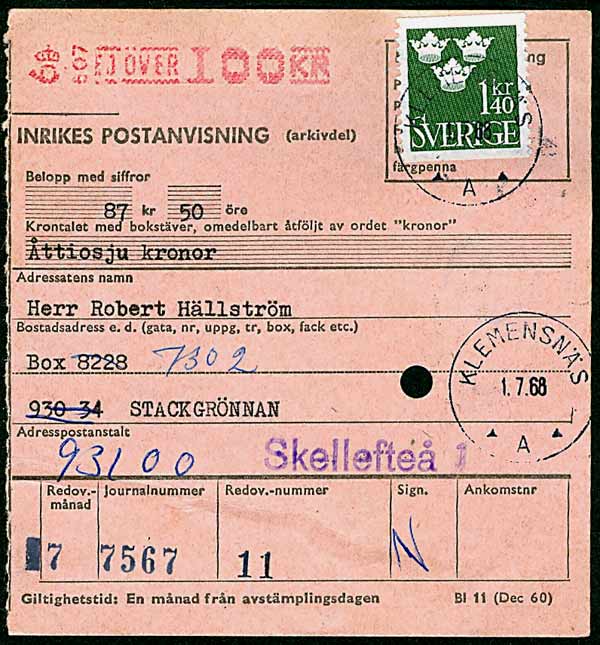 507 EJ ÖVER 100 KR
1 kr 40
SVERIGE
INRIKES POSTANVISNING (arkivdel)
färgpenna
A
Belopp med siffror
87 kr 50 öre
Krontalet med bokstäver, omedelbart åtföljt av ordet "kronor"
Åttiosju kronor
Adressatens namn
Herr Robert Hällström
Bostadsadress e. d. (gata, nr, uppg, tr, box, fack etc.)
Box 8228 7302
KLEMENSNÄS
1.7.68
A
930 34 STACKGRÖNNAN
Adresspostanstalt
931 00 Skellefteå 1
Redov.-månad Journalnummer Redov.-nummer Sign. Ankomstnr
7 7567 11 N
Giltighetstid: En månad från avstämplingsdagen Bl 11 (Dec 60)